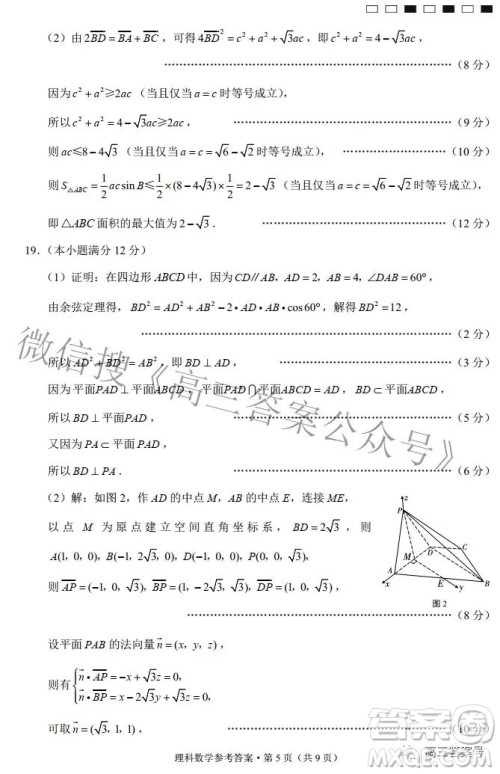 （2）由2BD=BA+BC，可得4BD²=c²+a²+√3ac，即c²+a²=4−√3ac，
（8分）
因为c²+a²≥2ac（当且仅当a=c时等号成立），
所以c²+a²=4−√3ac≥2ac，（9分）
则ac≤8−4√3（当且仅当a=c=√6−√2时等号成立），（10分）
则S△ABC=1/2acsinB≤1/2×(8−4√3)×1/2=2−√3（当且仅当a=c=√6−√2时等号成立），
即△ABC面积的最大值为2−√3．（12分）
19．（本小题满分12分）
（1）证明：在四边形ABCD中，因为CD//AB，AD=2，AB=4，∠DAB=60°，
由余弦定理得，BD²=AD²+AB²−2•AD•AB•cos60°，解得BD²=12，
（2分）
所以AD²+BD²=AB²，即BD⊥AD，（3分）
因为平面PAD⊥平面ABCD，平面PAD∩平面ABCD=AD，BD⊂平面ABCD，
所以BD⊥平面PAD，（5分）
又因为PA⊂平面PAD，
所以BD⊥PA．（6分）
（2）解：如图2，作AD的中点M，AB的中点E，连接ME，
以点M为原点建立空间直角坐标系，BD=2√3，则
A(1，0，0)，B(−1，2√3，0)，D(−1，0，0)，P(0，0，√3)，
则AP=(−1，0，√3)，BP=(1，−2√3，√3)，DP=(1，0，√3)，
z
P
D
C
M
A
E
B
x
y
图2
（8分）
设平面PAB的法向量n=(x，y，z)，
则有{n•AP=−x+√3z=0，
n•BP=x−2√3y+√3z=0，
可取n=(√3，1，1)，（10分）
理科数学参考答案·第5页（共9页）
微信搜《高三答案公众号》
高三答案号